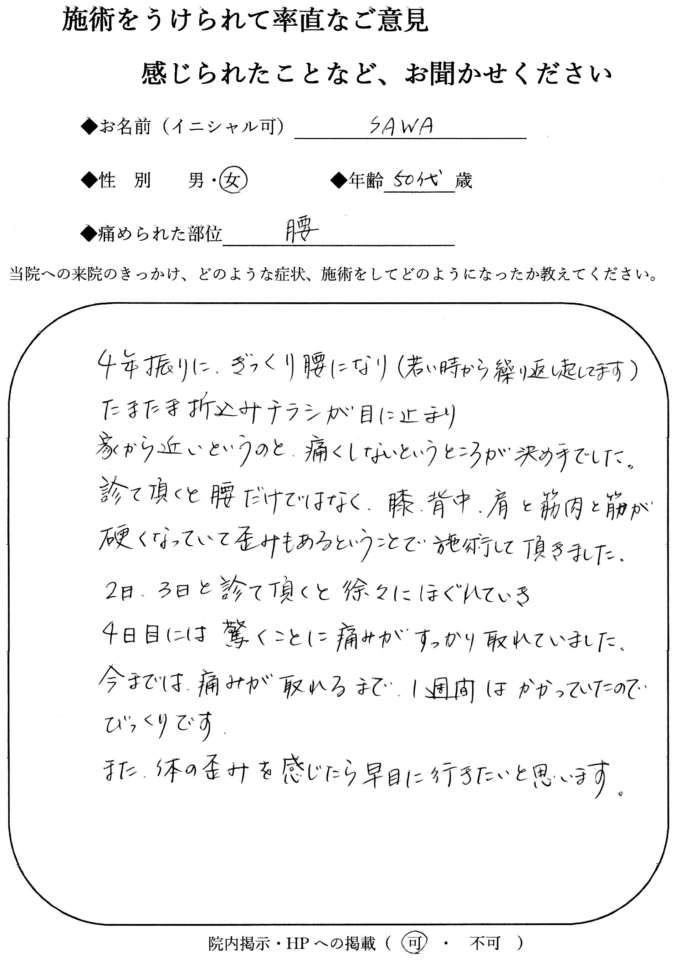 施術をうけられて率直なご意見
感じられたことなど、お聞かせください
◆お名前（イニシャル可） SAWA
◆性　別　　男・女　　◆年齢 50代 歳
◆痛められた部位 腰
当院への来院のきっかけ、どのような症状、施術をしてどのようになったか教えてください。
4年振りに、ぎっくり腰になり（若い時から繰り返し起してます）
たまたま折込みチラシが目に止まり
家から近いというのと、痛くしないというところが決め手でした。
診て頂くと腰だけではなく、膝、背中、肩と筋肉と筋が
硬くなっていて歪みもあるということで施術して頂きました、
2日、3日と診て頂くと徐々にほぐれていき
4日目には驚くことに痛みがすっかり取れていました、
今までは、痛みが取れるまで、1週間はかかっていたので
びっくりです、
また、体の歪みを感じたら早目に行きたいと思います。
院内掲示・HPへの掲載（ 可 ・ 不可 ）